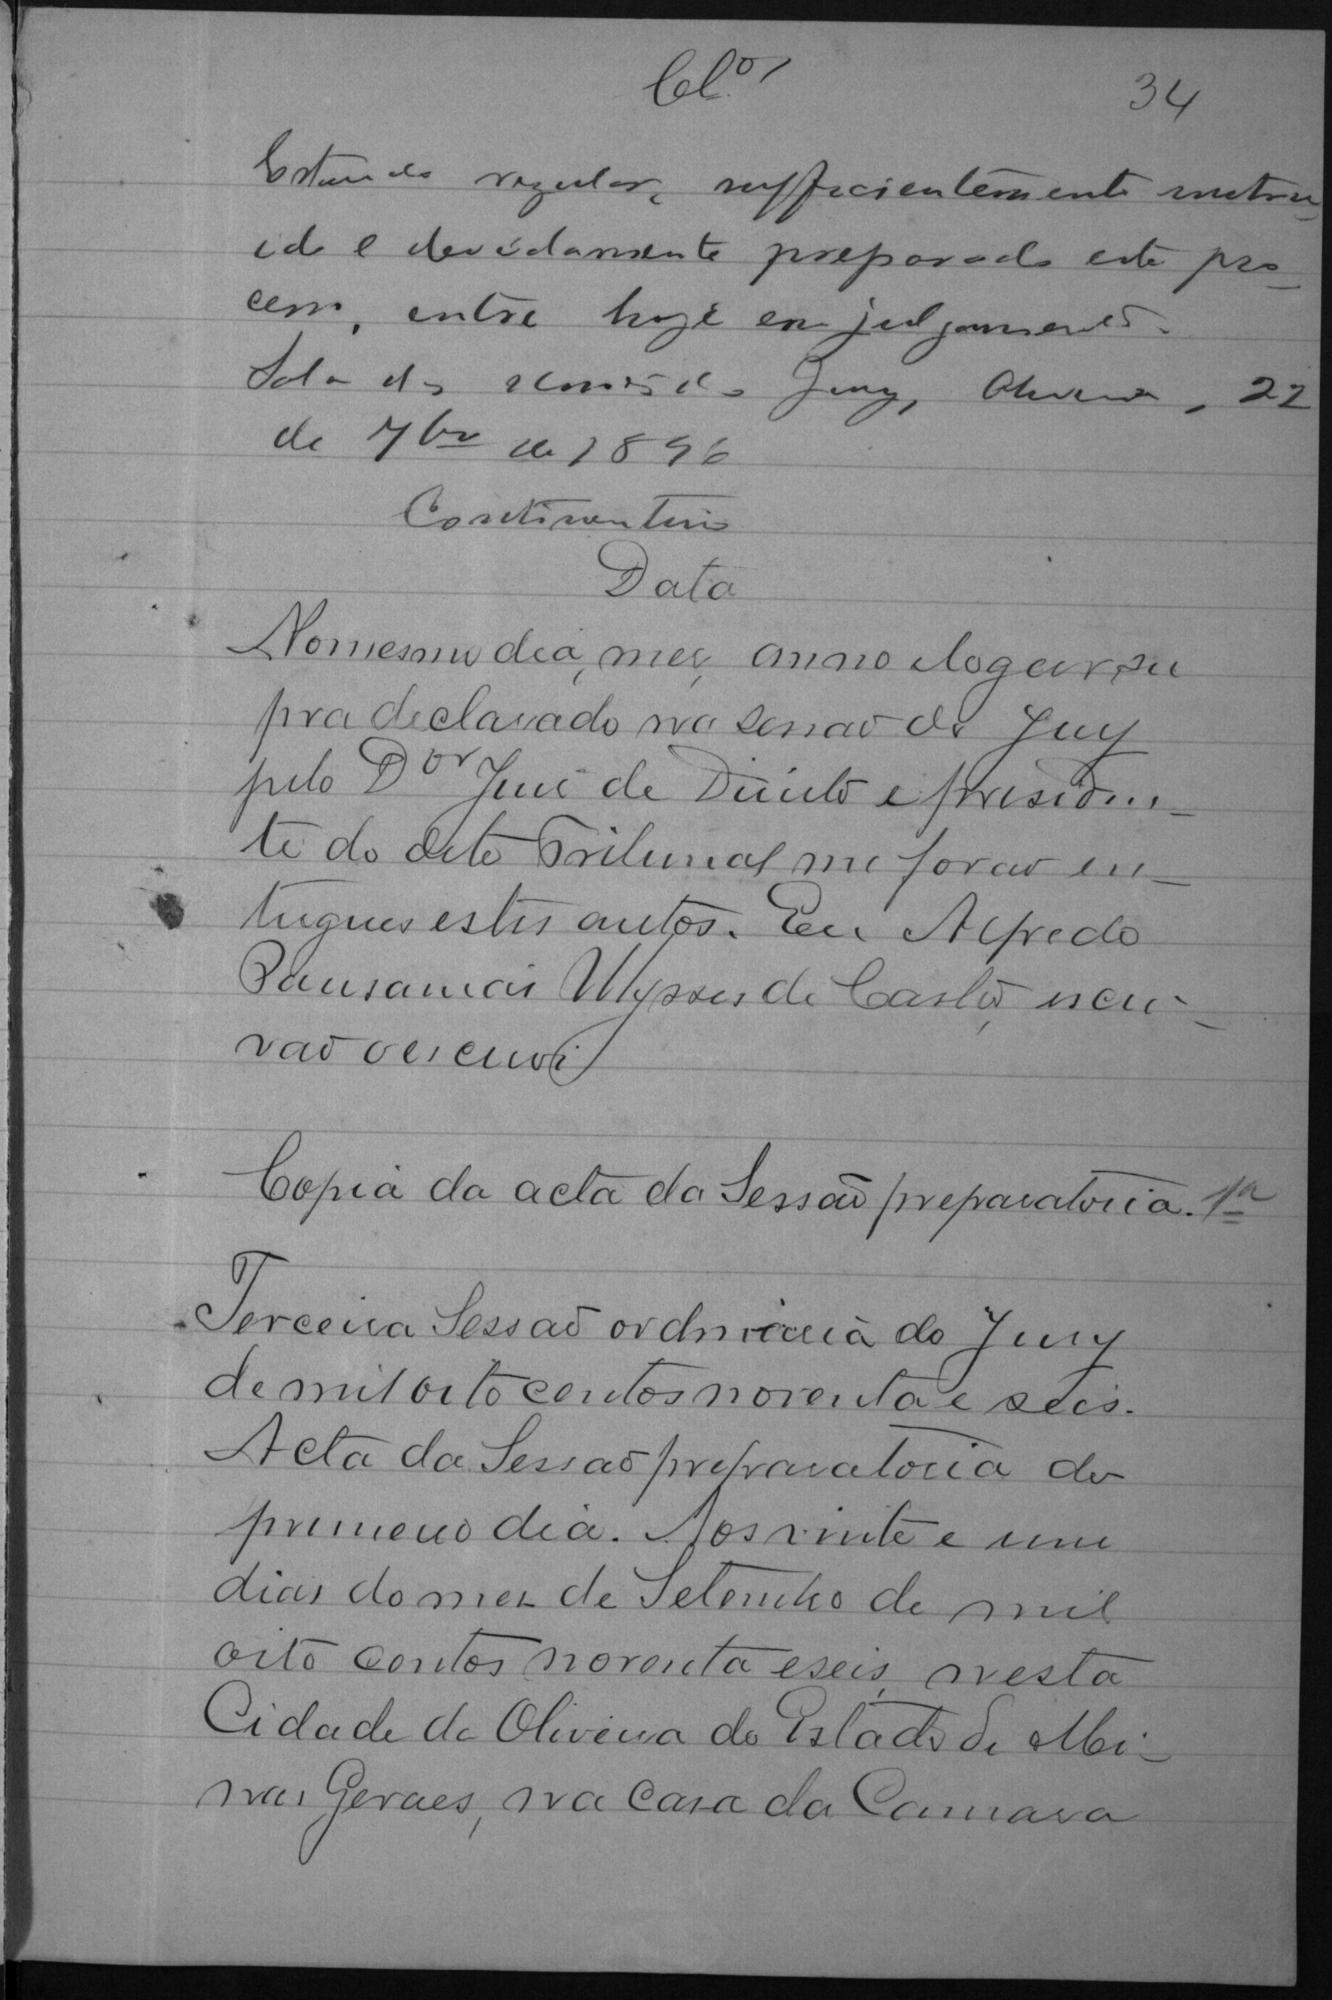 Cl.os
34
Estando regular, sufficientemente instru-
ido e devidamente preparado este pro-
cesso, entre hoje em julgamento.
Sala das sessões do Jury, Oliveira, 22
de 7bro de 1896
Data
No mesmo dia, mez, anno e logar su
pra declarado na sessaõ do Jury
pelo Dor Juiz de Direito e presiden-
te do dito Tribunal me foraõ en-
tregues estes autos. Eu Alfredo
Pausanias Ulysses de Castro, escri-
vaõ o escrevi
Copia da acta da Sessaõ preparatoria. 1a
Terceira Sessaõ ordinaria do Jury
de mil oito centos noventa e seis.
Acta da Sessaõ preparatoria do
primeiro dia. Aos vinte e um
dias do mez de Setembro de mil
oito centos noventa e seis, nesta
Cidade de Oliveira do Estado de Mi-
nas Geraes, na casa da Camara